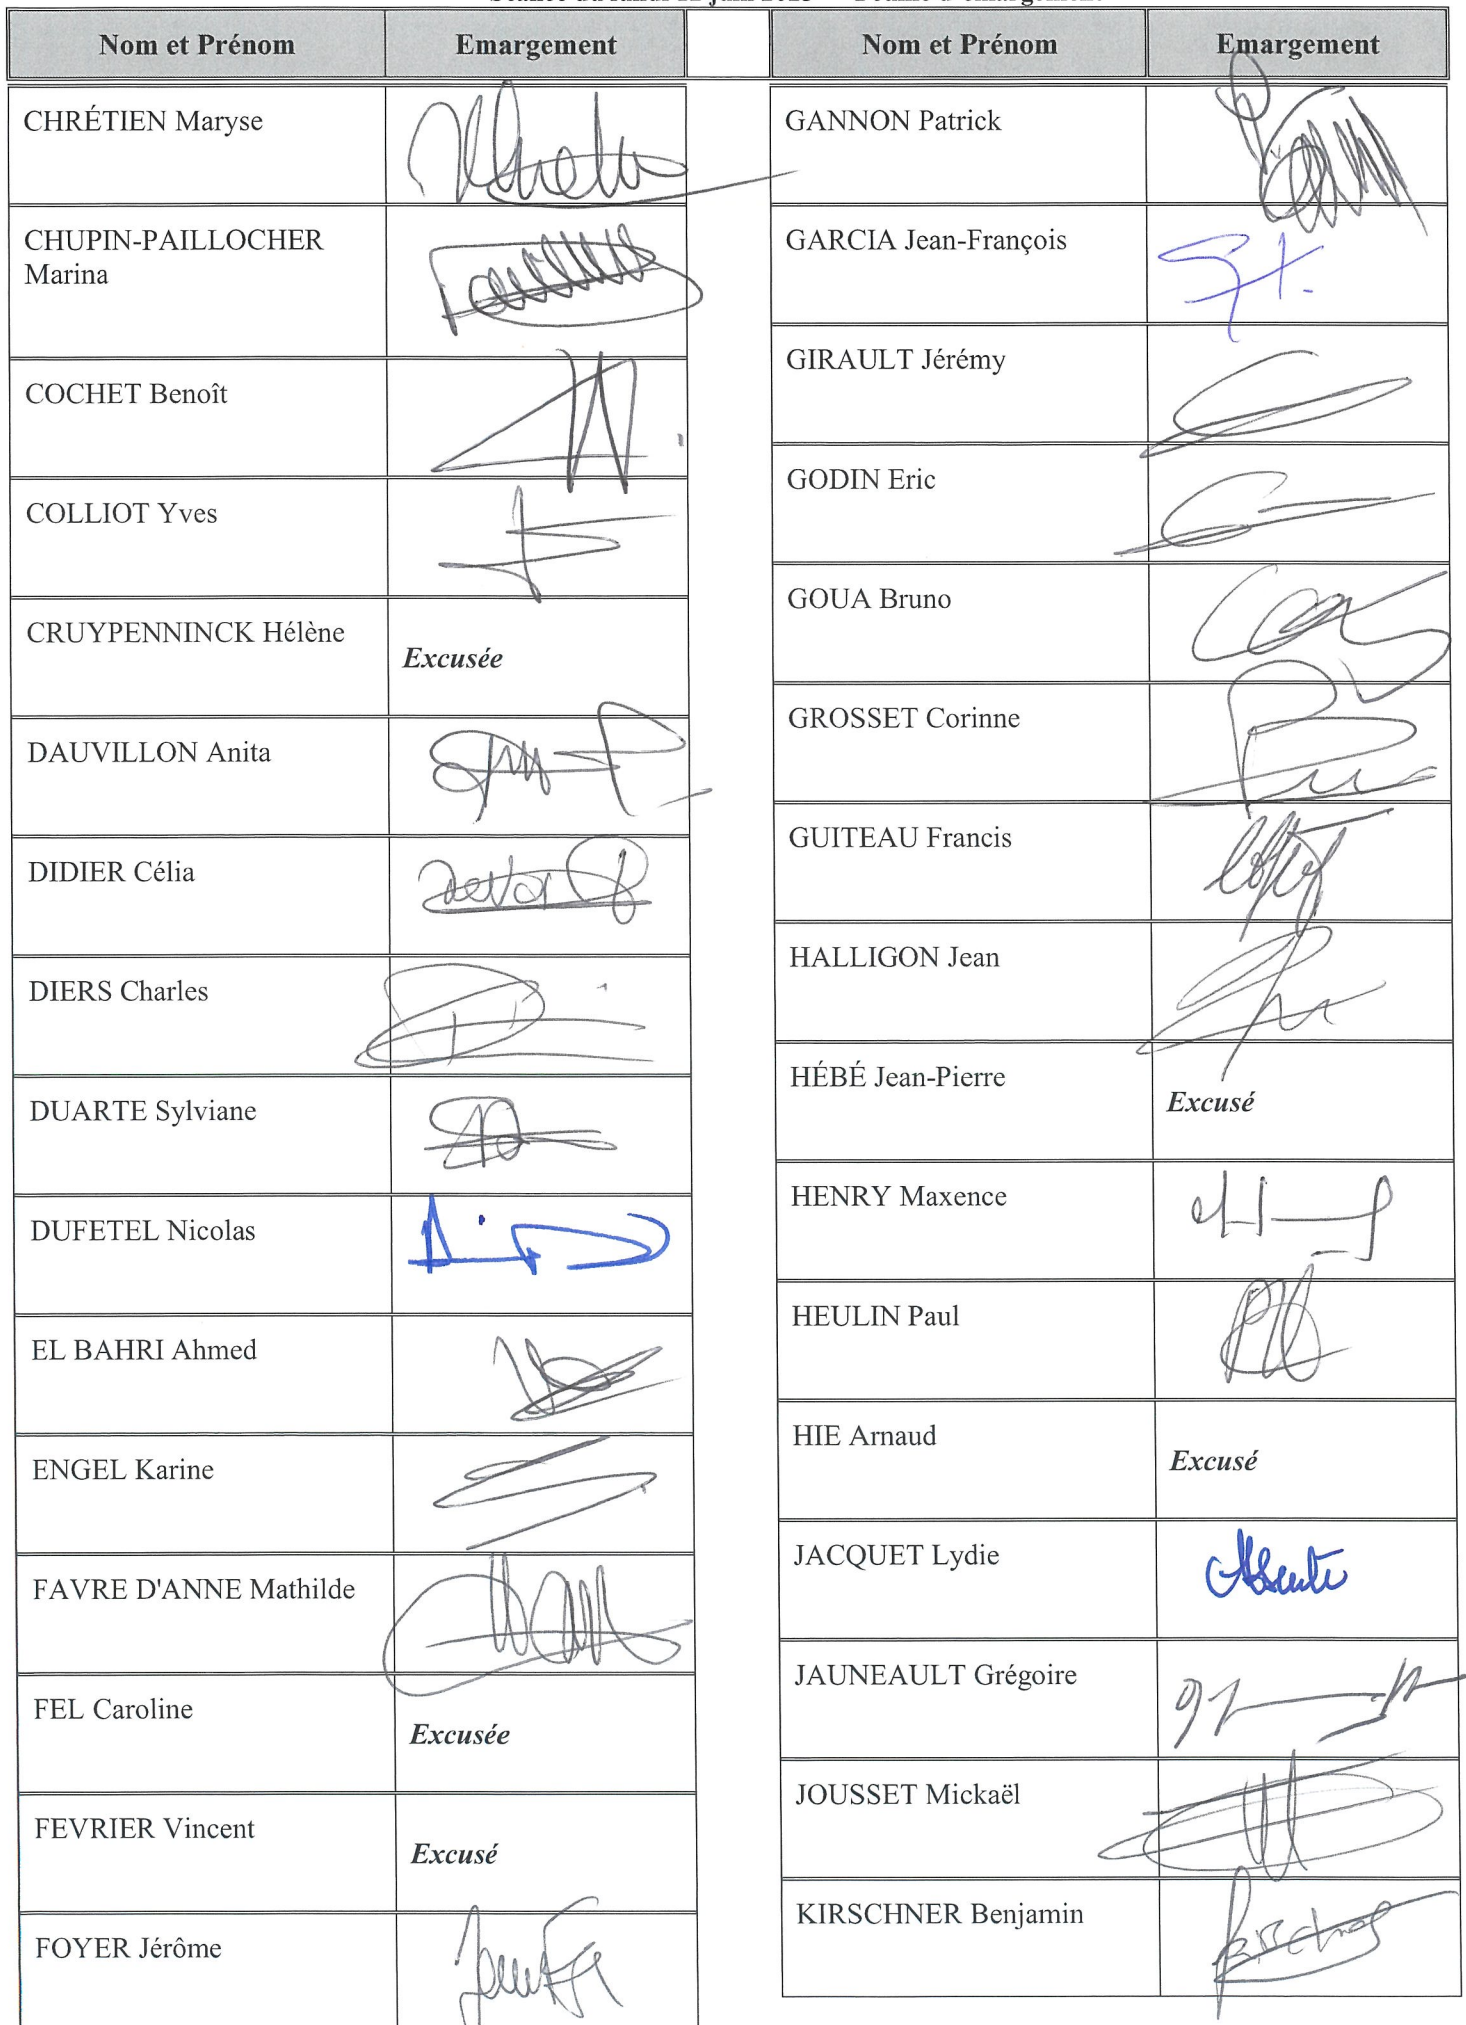 Nom et Prénom Emargement
CHRÉTIEN Maryse
CHUPIN-PAILLOCHER
Marina
COCHET Benoît
COLLIOT Yves
CRUYPENNINCK Hélène
Excusée
DAUVILLON Anita
DIDIER Célia
DIERS Charles
DUARTE Sylviane
DUFETEL Nicolas
EL BAHRI Ahmed
ENGEL Karine
FAVRE D'ANNE Mathilde
FEL Caroline
Excusée
FEVRIER Vincent
Excusé
FOYER Jérôme
Nom et Prénom Emargement
GANNON Patrick
GARCIA Jean-François
GIRAULT Jérémy
GODIN Eric
GOUA Bruno
GROSSET Corinne
GUITEAU Francis
HALLIGON Jean
HÉBÉ Jean-Pierre
Excusé
HENRY Maxence
HEULIN Paul
HIE Arnaud
Excusé
JACQUET Lydie
Absente
JAUNEAULT Grégoire
JOUSSET Mickaël
KIRSCHNER Benjamin